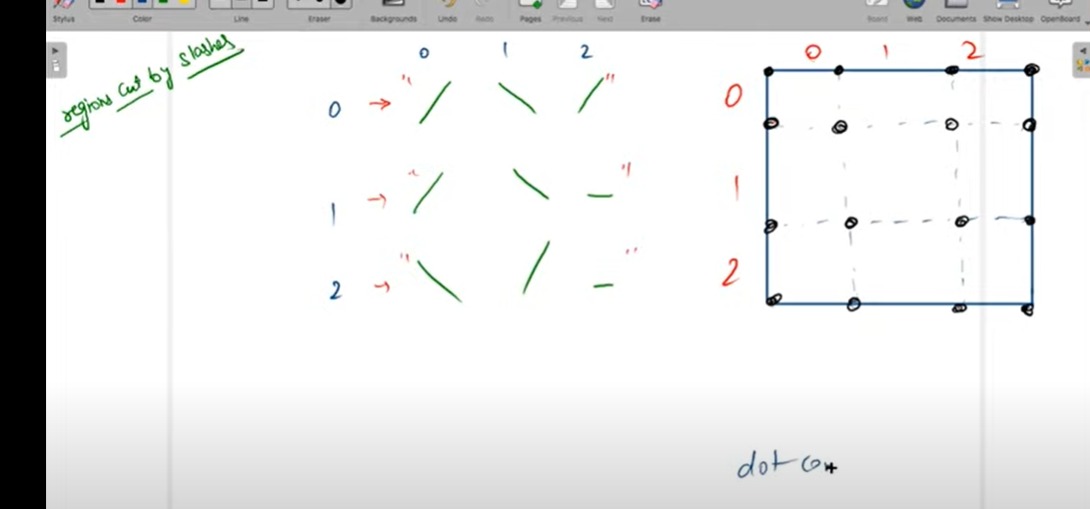 Stylus Color Line Eraser Backgrounds Undo Redo Pages Previous Next Erase Board Web Documents Show Desktop OpenBoard
regions cut by slashes
0 1 2
0 → " / \ / "
1 → " / \ — "
2 → " \ / — "
0 1 2
0
1
2
dot co